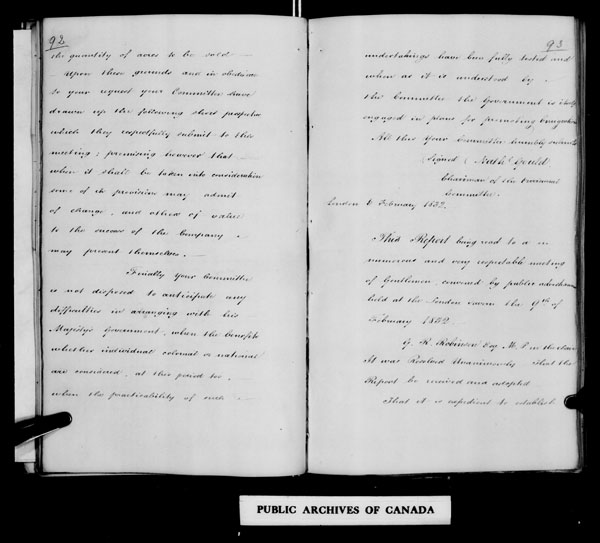 92
the quantity of acres to be sold
Upon these grounds and in obedience
to your request your Committee have
drawn up the following short prospectus
which they respectfully submit to this
meeting; premising however that
when it shall be taken into consideration
some of its provisions may admit
of change, and others of value
to the success of the Company
may present themselves.
Finally your Committee
is not disposed to anticipate any
difficulties in arranging with his
Majesty's Government, when the benefits
whether individual colonial or national
are considered, at this period too,
when the practicability of such
93
undertakings have been fully tested and
when as it is understood by
the Committee the Government is itself
engaged in plans for promoting Emigration
All this Your Committee humbly submit
(Signed) Nathl Gould
Chairman of the
Committee.
London 8 February 1832.
This Report being read to a
numerous and very respectable meeting
of Gentlemen, convened by public advertisement
held at the London Tavern the 9th of
February 1832
G. R. Robinson Esq. M.P. in the chair
It was Resolved Unanimously That the
Report be received and adopted
That it is expedient to establish
PUBLIC ARCHIVES OF CANADA